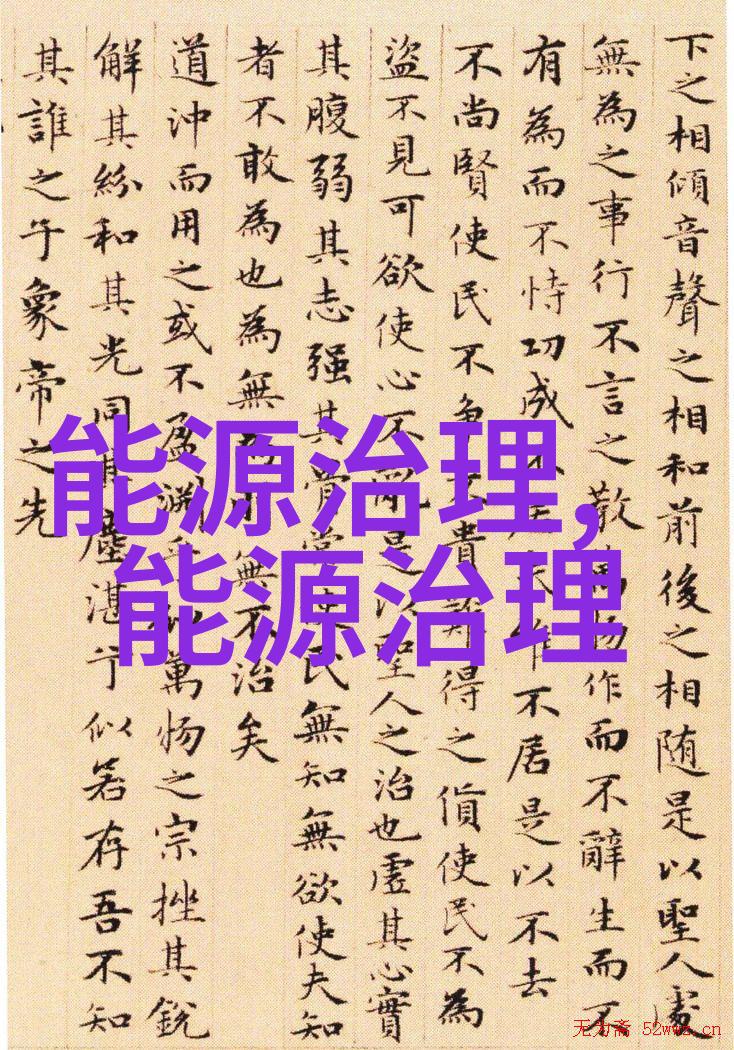 下之相傾音聲之相和前後之相随是以聖人處
無為之事行不言之教萬物作而不辭生而不
有為而不恃功成不居是以不去
不尚賢使民不争不貴難得之貨使民不為
盜不見可欲使心不亂是以聖人之治也虛其心實
其腹弱其志强其骨常使民無知無欲使夫知
者不敢為也為無為無不治矣
道沖而用之或不盈淵乎似萬物之宗挫其銳
解其紛和其光同其塵湛兮似若存吾不知
其誰之子象帝之先
能源治理,
能源治理
无为斋 52wwz.cn